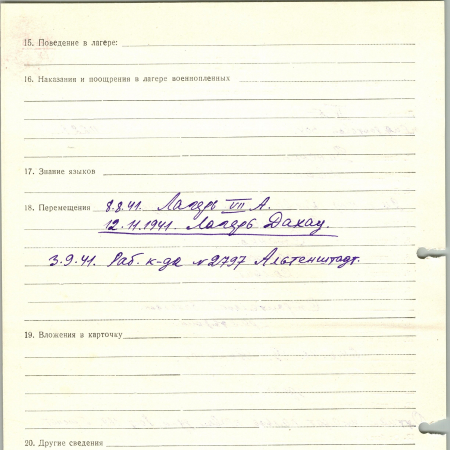 15. Поведение в лагере:
16. Наказания и поощрения в лагере военнопленных
17. Знание языков
18. Перемещения 8.8.41. Лагерь VII А.
12.11.1941. Лагерь Дахау.
3.9.41. Раб. к-да №2797 Альтенштадт.
19. Вложения и карточку
20. Другие сведения